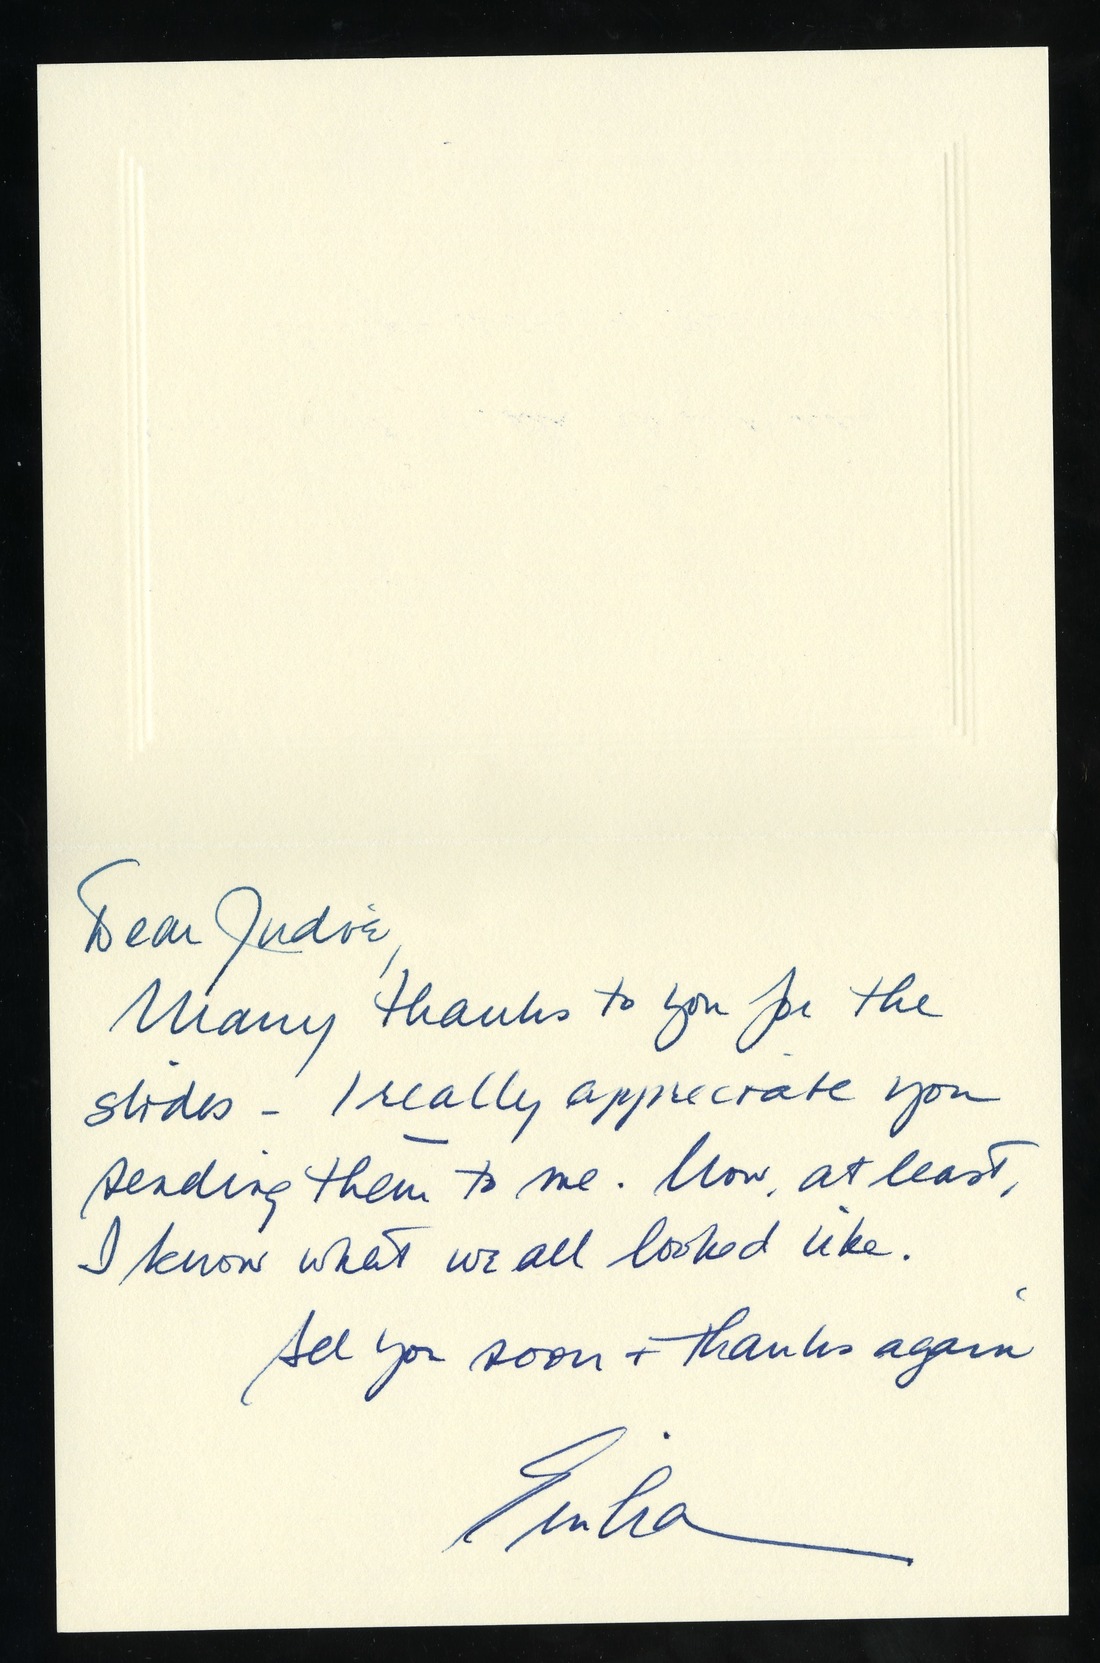 Dear Judie,
Many thanks to you for the
slides - I really appreciate you
sending them to me. Now, at least,
I know what we all looked like.
See you soon + thanks again